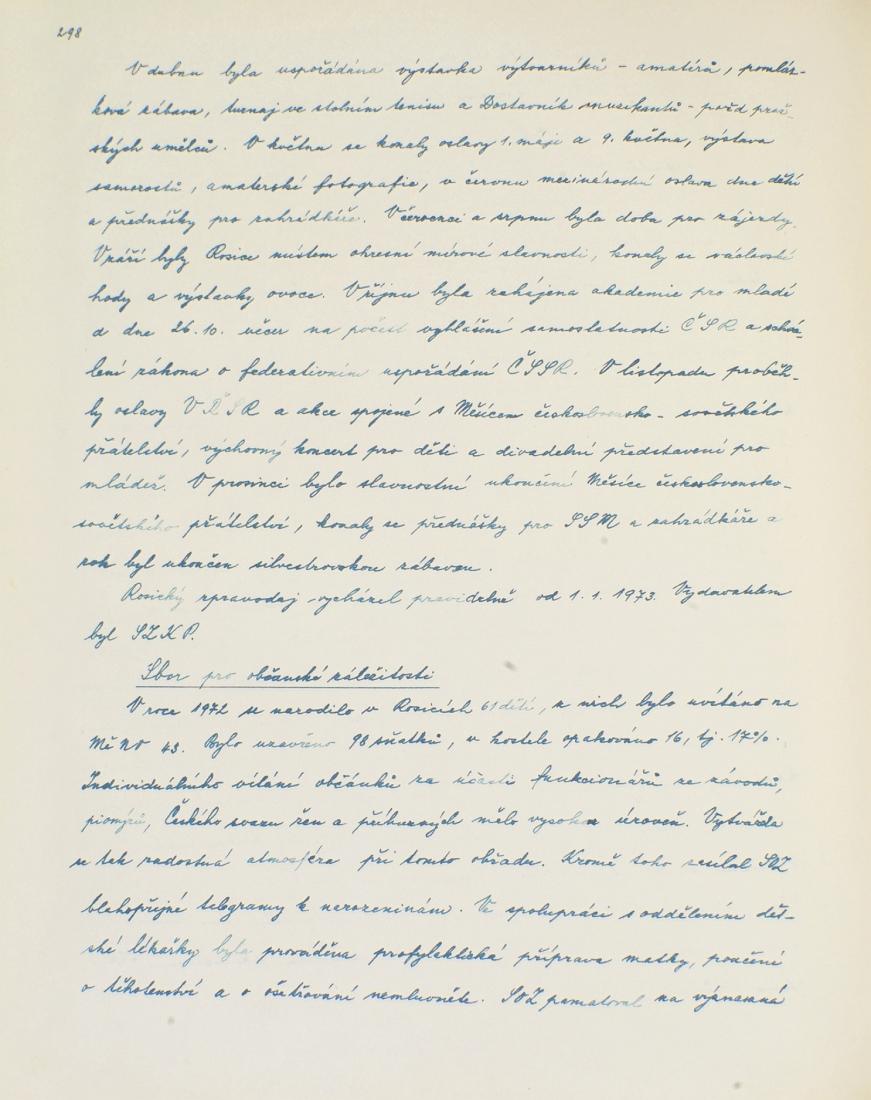 298
V dubnu byla uspořádána výstavka výtvarníků - amatérů, pomláz-
ková zábava, turnaj ve stolním tenisu a Dostavník muzikantů - pořad praž-
ských umělců. V květnu se konaly oslavy 1. máje a 9. května, výstava
samorostů, amaterské fotografie, v červnu mezinárodní oslava dne dětí
a přednášky pro zahrádkáře. V červenci a srpnu byla doba pro zájezdy.
V září byly Rosice místem okresní mírové slavnosti, konaly se václavské
hody a výstavky ovoce. V říjnu byla zahájena akademie pro mladé
a dne 26.10. večer na počest vyhlášení samostatnosti ČSR a schvá-
lení zákona o federativním uspořádání ČSSR. V listopadu proběh-
ly oslavy VŘSR a akce spojené s Měsícem československo - sovětského
přátelství, výchovný koncert pro děti a divadelní představení pro
mládež. V prosinci bylo slavnostní ukončení Měsíce československo-
sovětského přátelství, konaly se přednášky pro SSM a zahrádkáře a
rok byl ukončen silvestrovskou zábavou.
Rosický zpravodaj vycházel pravidelně od 1.1. 1973. Vydavatelem
byl SZKP.
Sbor pro občanské záležitosti
V roce 1972 se narodilo v Rosicích 61 dětí, z nich bylo uvítáno na
MěNV 43. Bylo uzavřeno 98 sňatků, v kostele opakováno 16, tj. 17%.
Individuálního vítání občánků za účasti funkcionářů ze závodů,
pionýrů, Českého svazu žen a příbuzných mělo vysokou úroveň. Vytvářela
se tak radostná atmosféra při tomto obřadu. Kromě toho zasílal SOZ
blahopřejné telegramy k narozeninám. Ve spolupráci s oddělením dět-
ské lékařky byla prováděna profylaktická příprava matky, poučení
o těhotenství a o ošetřování nemluvněte. SOZ pamatoval na významná